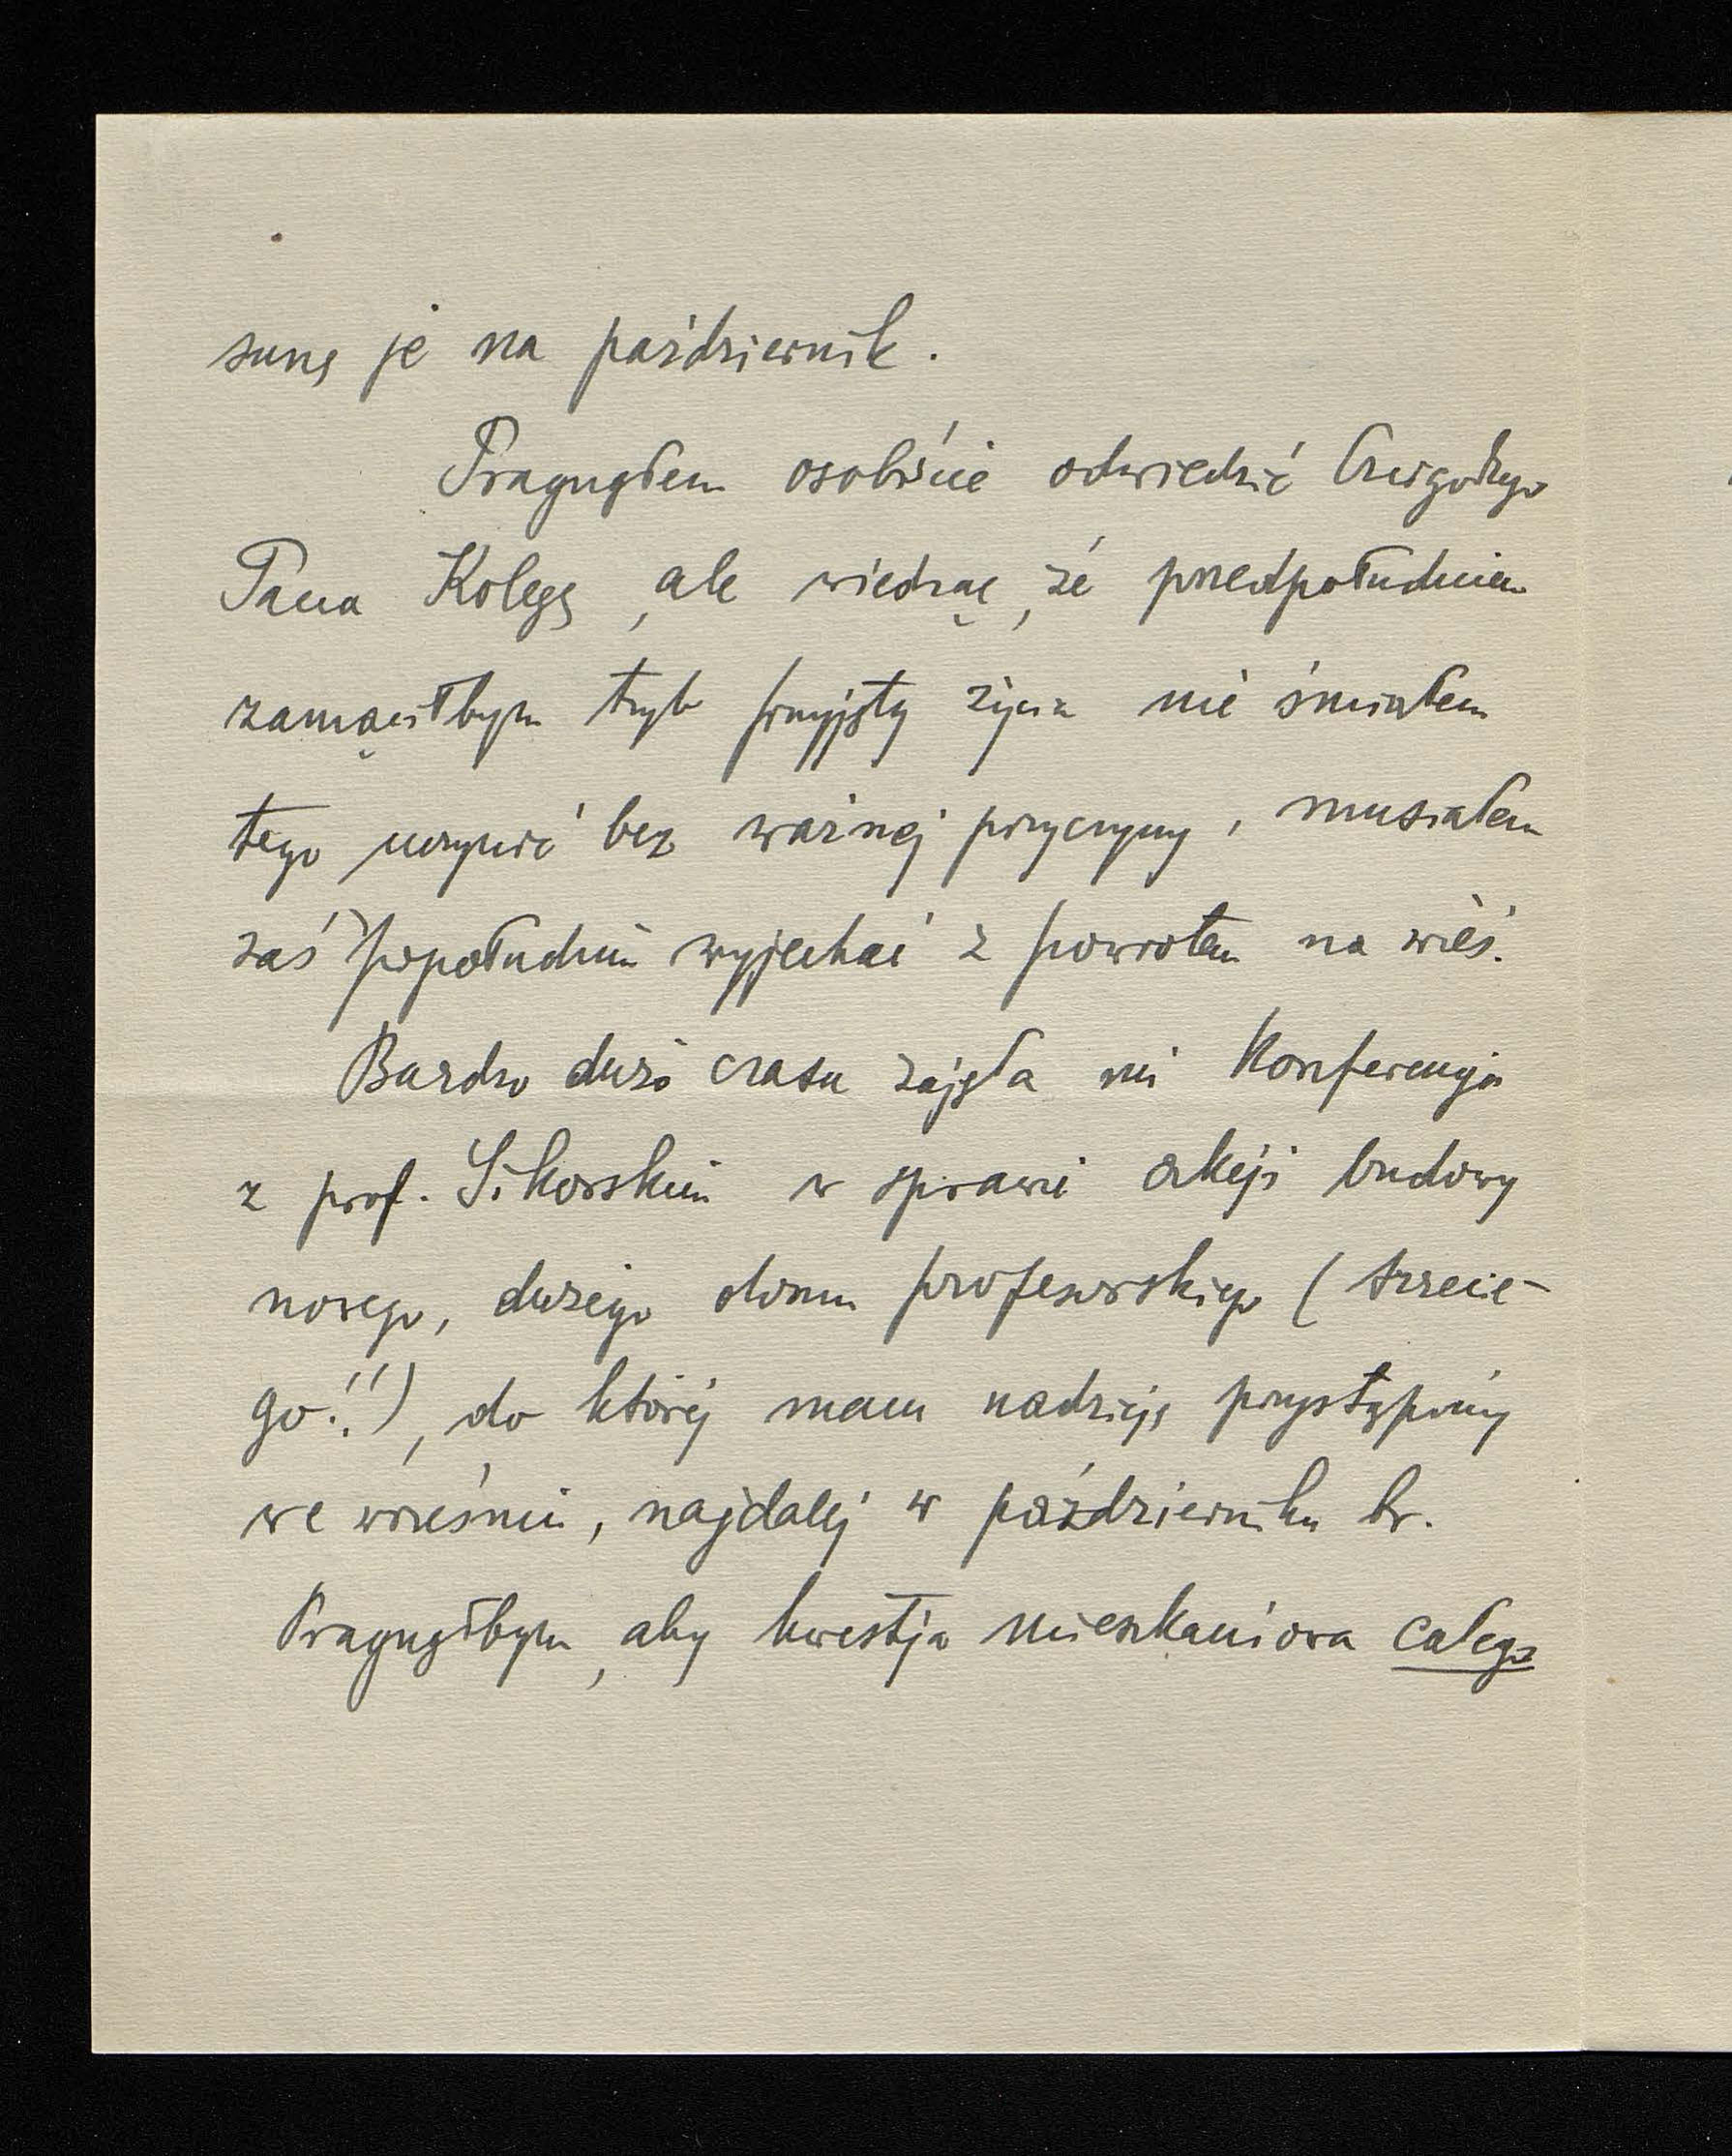 sunę je na październik.
Pragnąłem osobiście odwiedzić Czcigodnego
Pana Kolegę, ale wiedząc, że przedpołudniem
zamąciłbym tryb przyjęty życia nie śmiałem
tego uczynić bez ważnej przyczyny, musiałem
zaś popołudniu wyjechać z powrotem na wieś.
Bardzo dużo czasu zajęła mi Konferencja
z prof. Sikorskim w sprawie akcji budowy
nowego, dużego domu profesorskiego (trzecie-
go!!), do której mam nadzieję przystąpimy
we wrześniu, najdalej w październiku br.
Pragnąłbym, aby kwestja mieszkaniowa całego